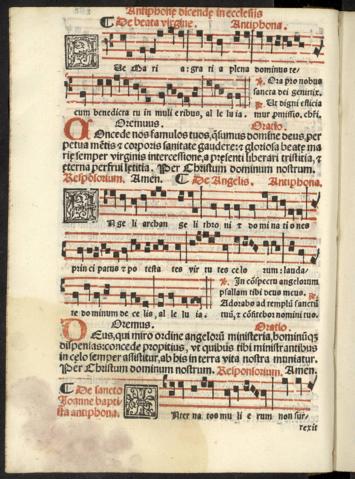 Antiphone dicende in ecclesiis
De beata virgine. Antiphona.
Ve Ma ri a: gra ti a plena dominus te/
℣. Ora pro nobis
sancta dei genitrix.
℟. Ut digni efficia
cum benedicta tu in muli eribus, al le lu ia. mur ꝓmissio. chri.
Oremus. Oratio.
Concede nos famulos tuos, q̃sumus domine deus, per
petua mẽtis ⁊ corporis sanitate gaudere: ⁊ gloriosa beate ma
rie semper virginis intercessione, a presenti liberari tristitia, ⁊
eterna perfrui letitia. Per Christum dominum nostrum.
Responsorium. Amen. De Angelis. Antiphona.
A Nge li archan ge li thro ni ⁊ do mina ti o nes
prin ci patus ⁊ po testa tes vir tu tes celo rum: lauda/
℣. In cõspectu angelorum
psallam tibi deus meus.
℟. Adorabo ad templũ sanctũ
te do minum de ce lis, al le lu ia. tuũ, ⁊ cõfitebor nomini tuo.
Oremus. Oratio.
Deus, qui miro ordine angelorũ ministeria, hominũq̃
dispensas: concede propitius, vt quibus tibi ministrantibus
in celo semper assistitur, ab his in terra vita nostra muniatur.
Per Christum dominum nostrum. Responsorium. Amen.
De sancto
Joanne bapti
sta antiphona.
Nter na tos muli e rum non sur/
rexit